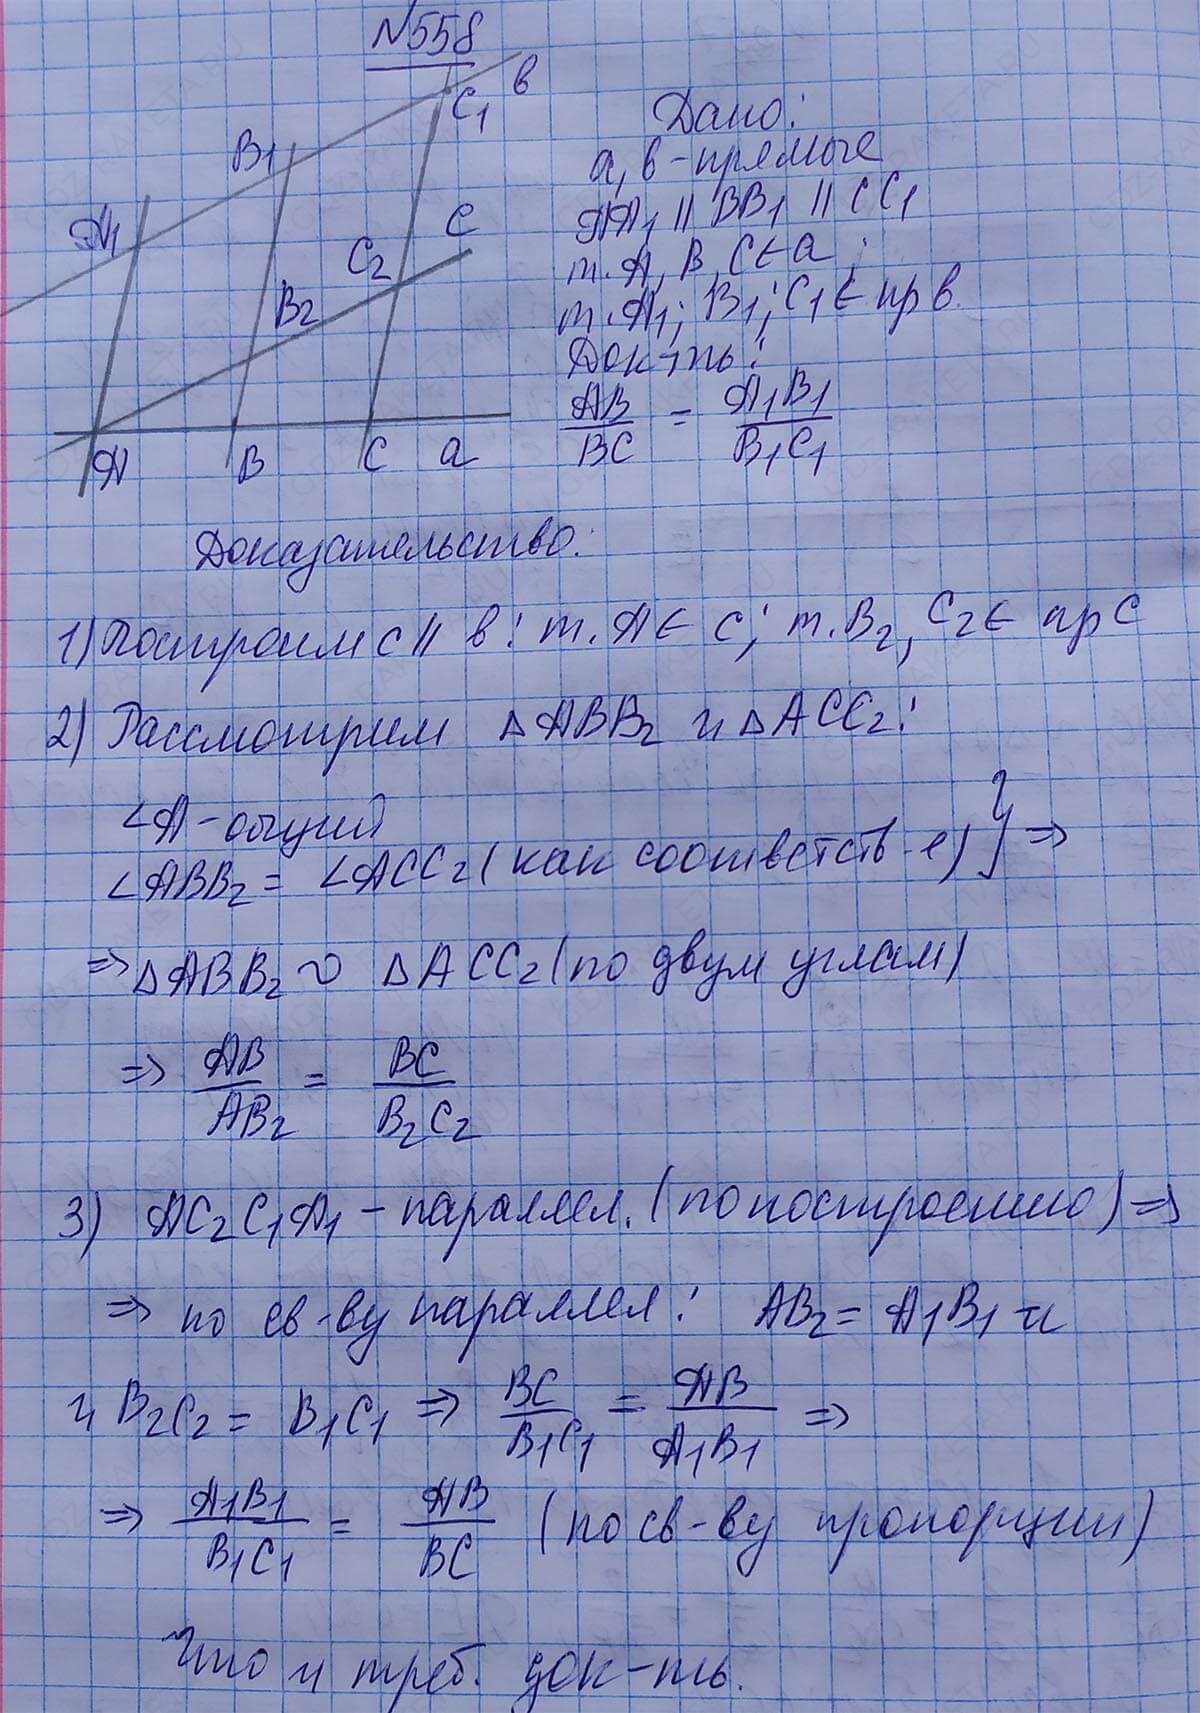 №558
в
C1
B1
A1
C
C2
B2
A
B
C
a
Дано:
а, в - прямые
AA1 || BB1 || CC1
т. A, B, C ∈ a ;
т. A1; B1; C1 ∈ пр в.
Док-ть:
AB/BC = A1B1/B1C1
Доказательство:
1) Построим c || в: т. A ∈ c; т. B2, C2 ∈ пр C
2) Рассмотрим △ABB2 и △ACC2:
∠A - общий
∠ABB2 = ∠ACC2 (как соответств-е) } ⇒
⇒ △ABB2 ∾ △ACC2 (по двум углам)
⇒ AB/AB2 = BC/B2C2
3) AC2C1A1 - параллел. (по построению) ⇒
⇒ по св-ву параллел: AB2 = A1B1 и
и B2C2 = B1C1 ⇒ BC/B1C1 = AB/A1B1 ⇒
⇒ A1B1/B1C1 = AB/BC (по св-ву пропорции)
Что и треб. док-ть.